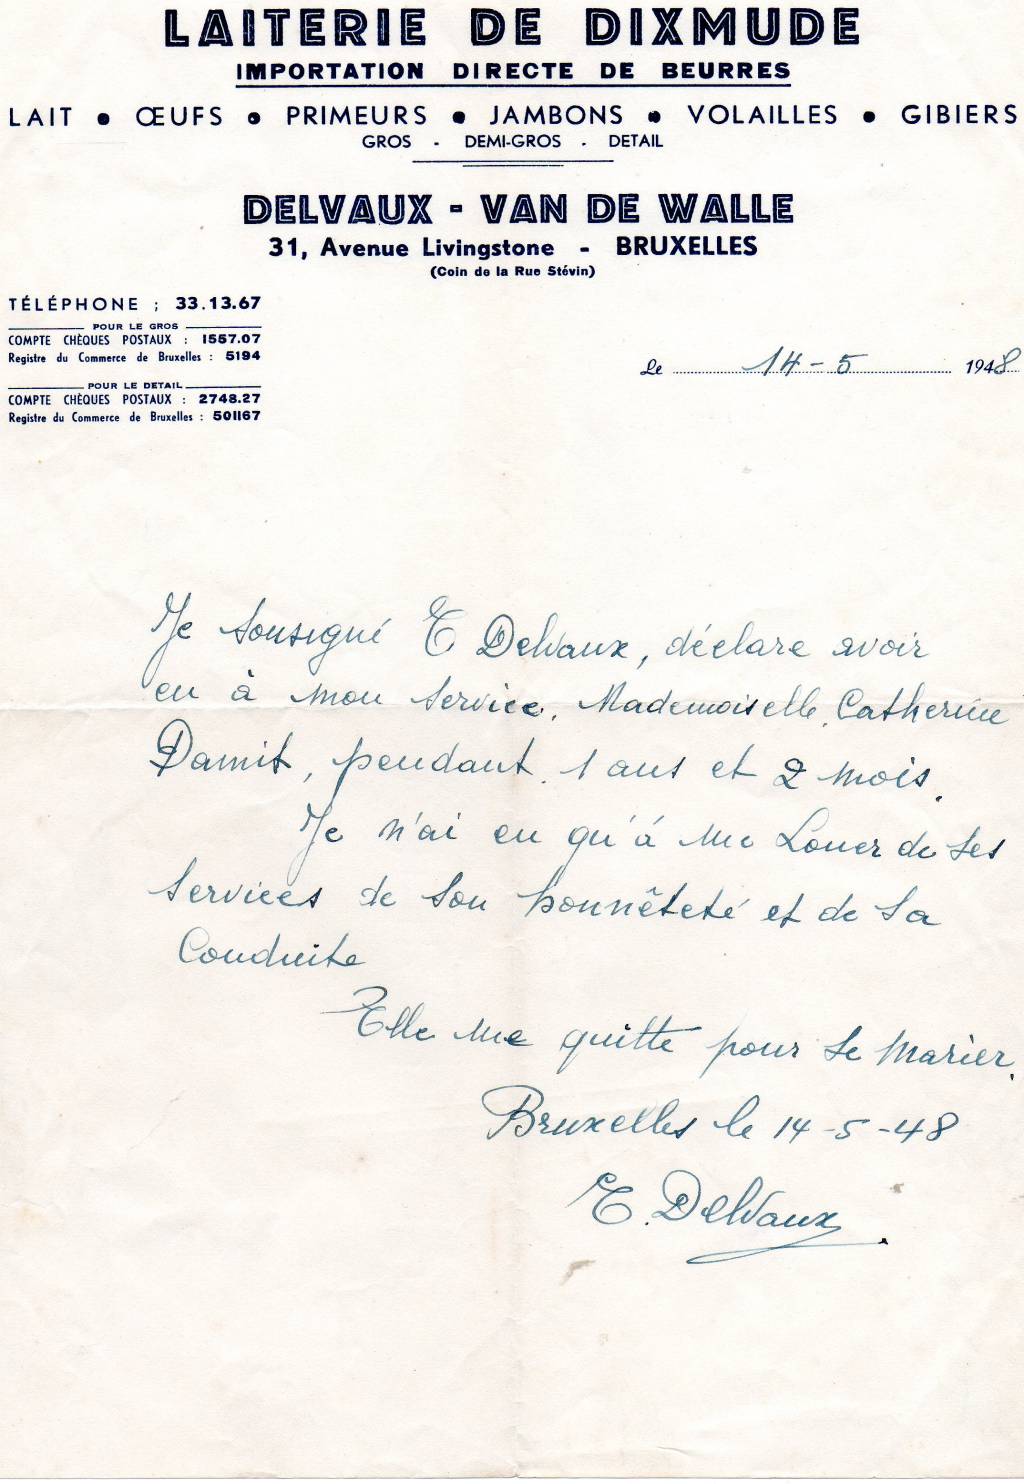 LAITERIE DE DIXMUDE
IMPORTATION DIRECTE DE BEURRES
LAIT • ŒUFS • PRIMEURS • JAMBONS • VOLAILLES • GIBIERS
GROS - DEMI-GROS - DETAIL
DELVAUX - VAN DE WALLE
31, Avenue Livingstone - BRUXELLES
(Coin de la Rue Stévin)
TÉLÉPHONE ; 33.13.67
POUR LE GROS
COMPTE CHÈQUES POSTAUX : 1557.07
Registre du Commerce de Bruxelles : 5194
POUR LE DETAIL
COMPTE CHÈQUES POSTAUX : 2748.27
Registre du Commerce de Bruxelles : 501167
Le 14-5 1948
Je sousigné E Delvaux, déclare avoir
eu à mon service, Mademoiselle Catherine
Damit, pendant 1 ans et 2 mois.
Je n'ai eu qu'à me Louer de ses
services de son honnêteté et de sa
Conduite
Elle me quitte pour se marier.
Bruxelles le 14-5-48
E. Delvaux.